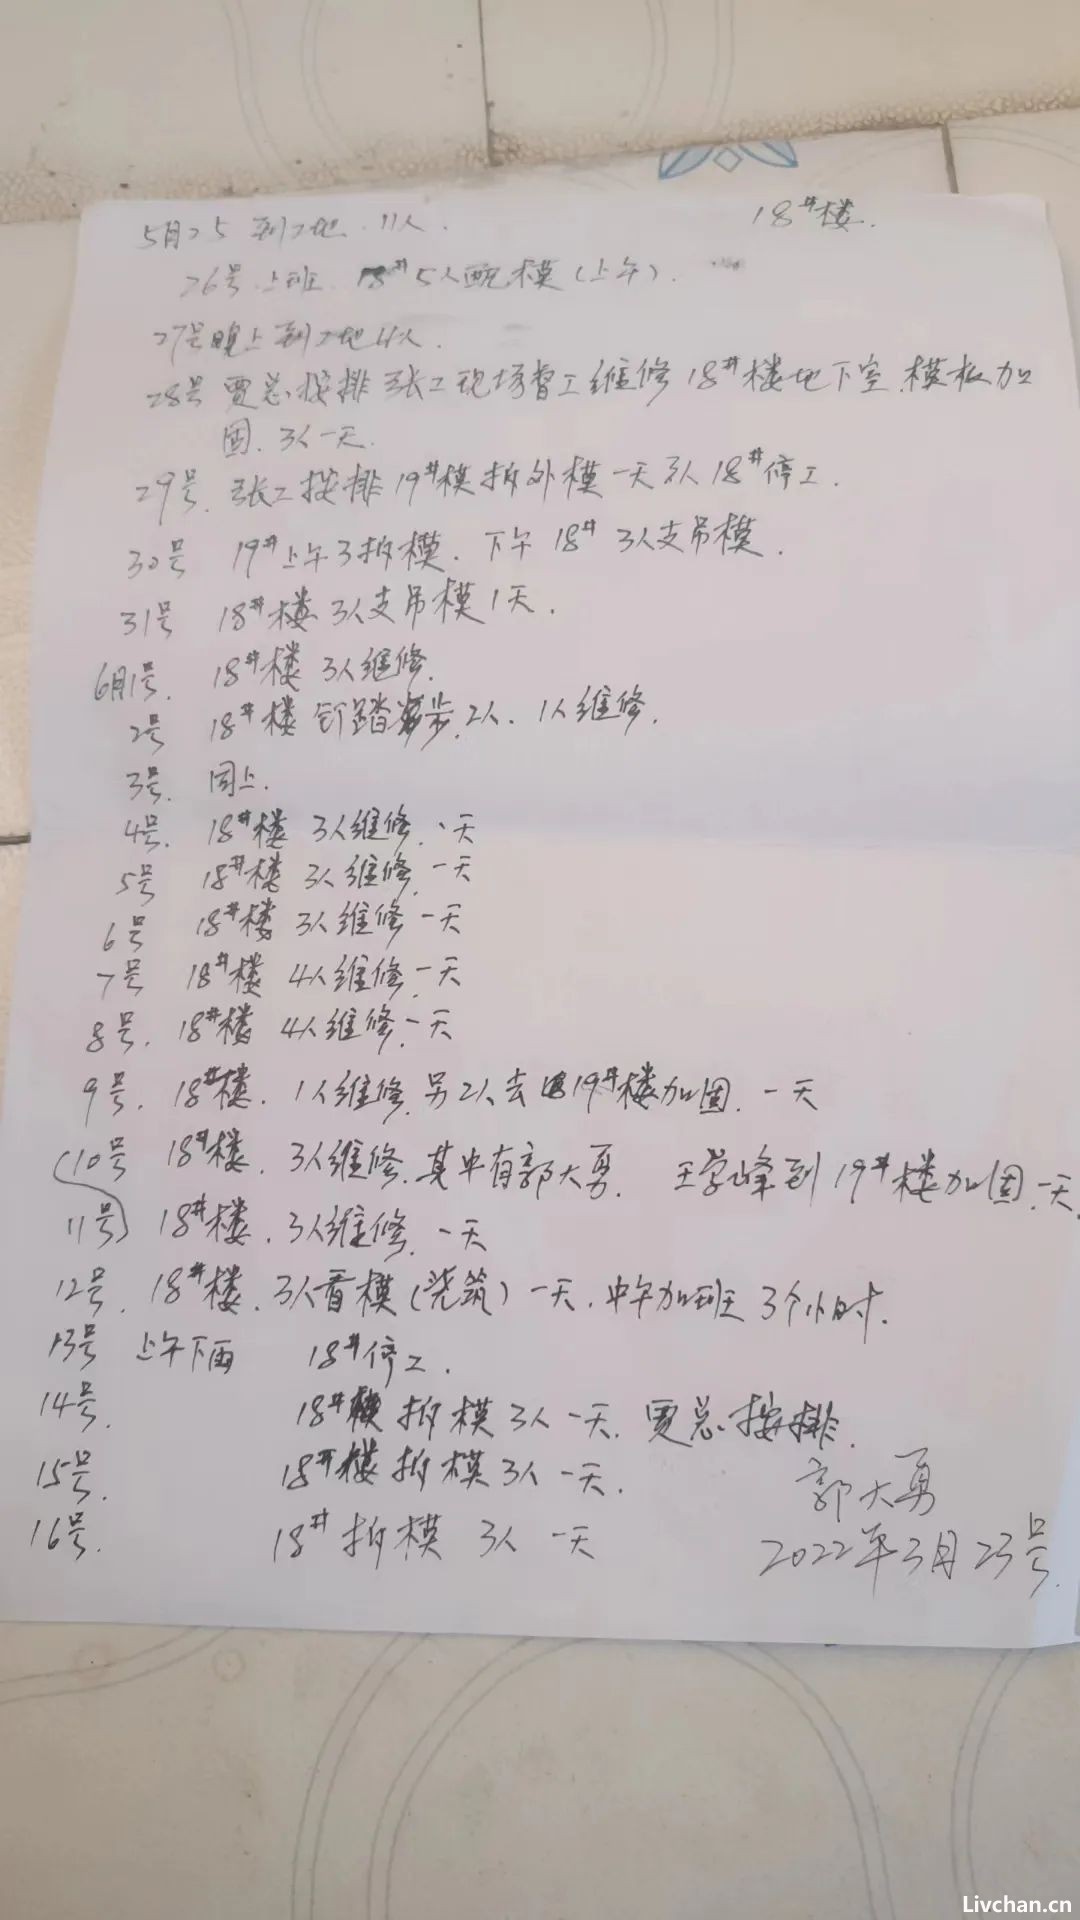 18#楼.
5月25 到工地.11人.
26号.上班. 18#5人配模(上午).
27号晚上到工地4人.
28号 贾总按排张工现场督工维修18#楼地下室.模板加
固.3人一天.
29号.张工按排19#模拆外模一天3人18#停工.
30号 19#上午3拆模.下午18#3人支吊模.
31号 18#楼3人支吊模1天.
6月1号. 18#楼3人维修.
2号 18#楼 钉踏步.2人.1人维修.
3号. 同上.
4号. 18#楼 3人维修.一天
5号 18#楼 3人维修.一天
6号 18#楼 3人维修一天
7号 18#楼 4人维修.一天
8号. 18#楼 4人维修.一天
9号. 18#楼.1人维修.另2人去19#楼加固.一天
(10号 18#楼.3人维修.其中有郭大勇. 王学峰到19#楼加固.一天.
11号) 18#楼.3人维修.一天
12号. 18#楼.3人看模(浇筑)一天.中午加班3个小时.
13号 上午下雨 18#停工.
14号. 18#楼拆模3人一天.贾总按排.
15号. 18#楼拆模3人一天.
16号. 18#拆模 3人 一天
郭大勇
2022年3月23号.
Livchan.cn